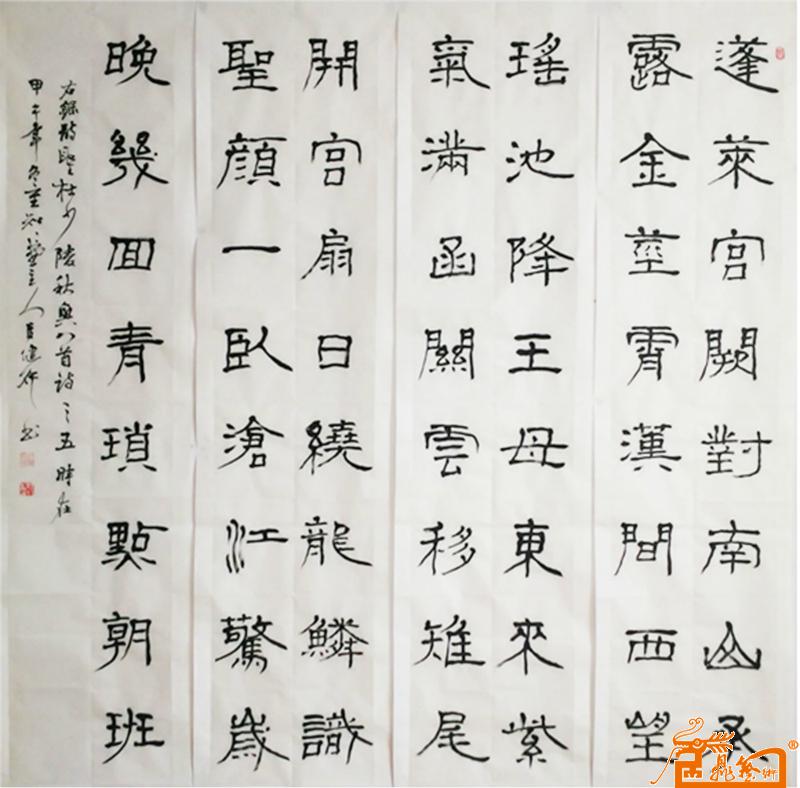 蓬萊宮闕對南山承
露金莖霄漢間西望
瑤池降王母東來紫
氣滿函關雲移雉尾
開宮扇日繞龍鱗識
聖顏一臥滄江驚歲
晚幾回青瑣點朝班
右錄詩聖杜少陵秋興八首詩之五 時在
甲午年冬 主人 書